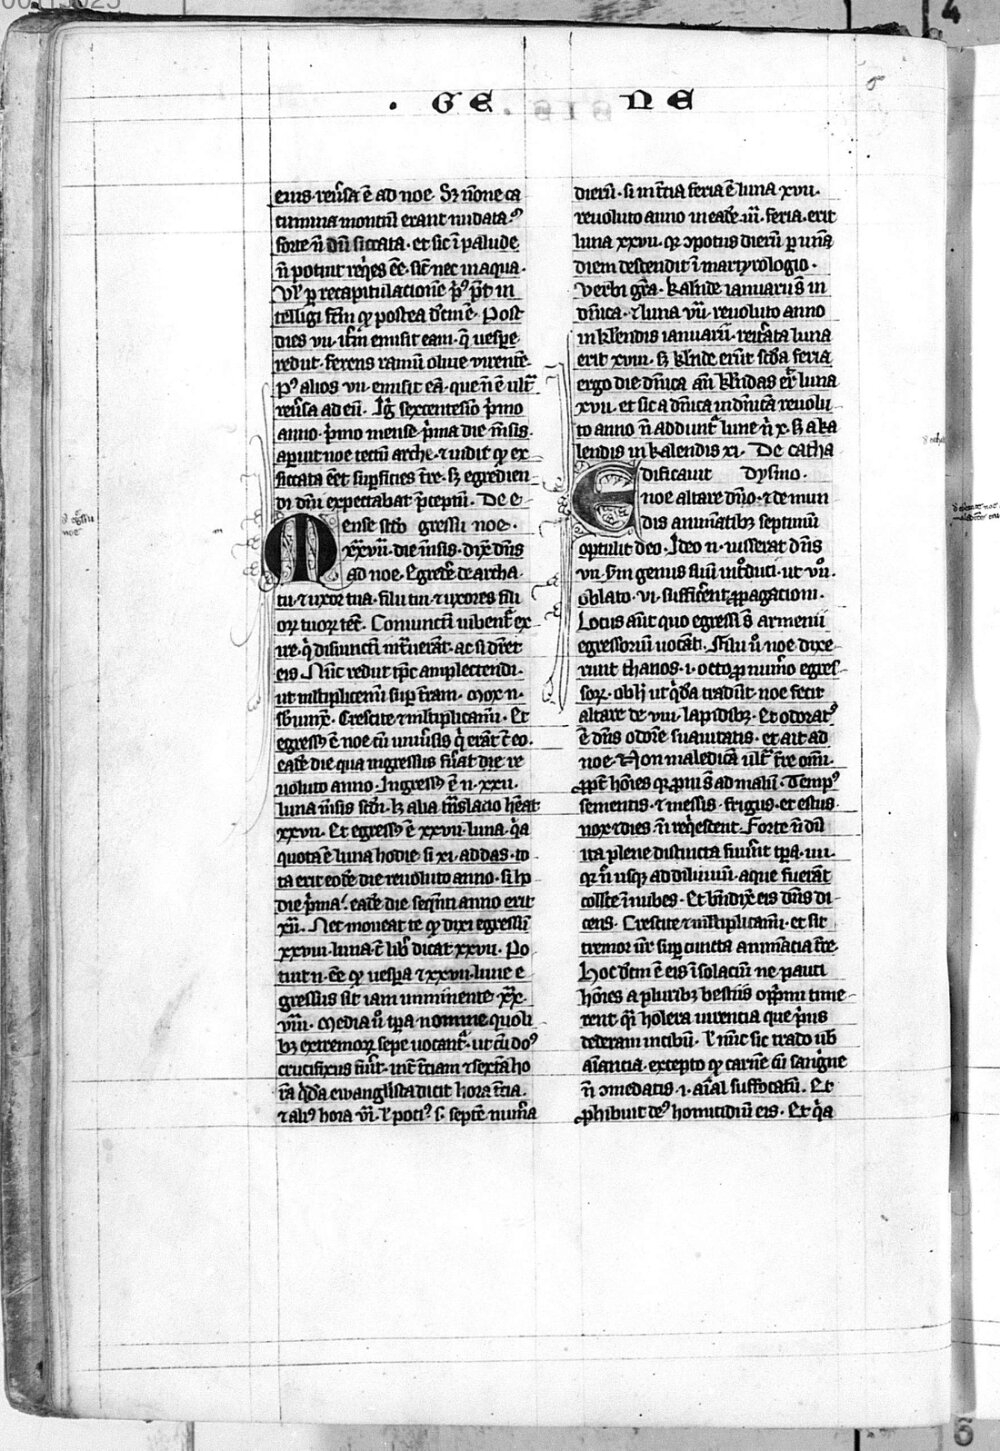 . GE NE
eius. reu̾sa ē ad noe. Sꝫ nōne ca
cumina montiū erant nudata.
forte nō dū siccata. et sic ī palude
n̄ potuit req̇es eē. sic̄ nec in aqua.
Ul̾ ꝑ recapitulacionē pꝰ pōt in
telligi fc̄m ꝙ postea dc̄m ē. Post
dies vii. itm̄ emisit eam. q̄ uespe
rediit. ferens ramū oliue uirente.
Pꝰ alios vii. emisit eā. que n̄ ē ult̾
reu̾sa ad eū. Ig̾ sexcentesīo p̾mo
anno. p̾mo mense p̾ma die m̄sis.
aperuit noe tectū arche. ⁊ uidit ꝙ ex
siccata eēt suꝑficies tr̄e. sꝫ egredien
di dn̄i expectabat p̄ceptū. De e
ense scd̾o gressu noe.
xxvii. die m̄sis. dix̄ dn̄s
ad noe. Egred̾e de archa
tu. ⁊ uxor tua. filii tui. ⁊ uxores fili
oꝝ tuoꝝ tec̄. Coniuncti iubent̾ ex
ire. q̇ disiuncti int̾uerāt. ac si dic̾et
eis. Nūc rediit tp̄c amplectendi.
ut m̄ltiplicemī suꝑ t̾ram. mox n.
sbiunx̄. Crescite ⁊ m̄ltiplicamī. Et
egressꝰ ē noe cū uniu̾sis q̇ erāt c̄ eo.
eadē die qua ingressus fu̾at die re
uoluto anno. Ingressꝰ ē n. xxii.
luna m̄sis scd̾i. lꝫ alia t̾nslacio heat
xxvii. Et egressꝰ ē xxvii. luna. q̇a
quota ē luna hodie. si xi. addas. to
ta erit eodē die reuoluto anno. si ho
die p̾ma. eadē die seq̄nti anno erit
xii. Nec moueat te ꝙ dixi egressū
xxviii. luna. c̄ lib̾ dicat xxvii. Po
tuit n. eē ꝙ uespa ⁊ xxvii. lune e
gressus sit iam imminente xx.
viii. media u̾ tp̄a nomine quoli
bꝫ extremoꝝ sepe uocant̾. ut cū doꝰ
crucifixus fu̾it. int̾ t̾ciam ⁊ sextā ho
rā q̇da ewangl̾ista dicit hora t̾cia.
⁊ aliꝰ hora vi. l̾ potiꝰ s. septē num̾a
dierū. si in t̾cia feria ē luna xvii.
reuoluto anno in eadē iii. feria. erit
luna xxvii. qꝛ ꝯpotus dierū ꝑ unā
diem descendit ī martyrologio.
Verbi gr̄a. kal̾nde ianuarii s̄ in
dn̄ica. ⁊ luna vii. reuoluto anno
in kl̾endis ianuarii. reit̾ata luna
erit xviii. sꝫ kl̾nde erūt scd̾a feria
ergo die dn̄ica an̄ kl̾ndas er̾ luna
xvii. et sic a dn̄ica in dn̄icā reuolu
to anno n̄ addunt̾ lune n̄ x. sꝫ a ka
lendis in kalendis xi. De catha
E dificauit dysmo.
noe altare dn̄o. ⁊ de mun
dis animātibꝫ septimū
optulit deo. Ideo n. iusserat dn̄s
vii. s̄m genus suū int̾oduci. ut vii.
oblato. vi. sufficēt ꝓpagacioni.
Locus aūt quo egressi s̄ armenii
egressoriū uocāt. Filii u̾ noe dixe
runt thanos. i. octo ꝓ num̾o egres
soꝝ. obl̾i ut q̇da tradūt. noe fecit
altare de viii. lapidibꝫ. Et odoratꝰ
ē dn̄s odorē suauitatis. et ait ad
noe. Non maledicā ult̾ tr̄e omī.
ꝓpt̾ hoīes qꝛ pni s̄ ad malū. Tempꝰ
sementis. ⁊ messis. frigus. et estus.
nox ⁊ dies. n̄ req̇escent. Forte n̄ dū
ita plene distincta fu̾unt tp̄a. iiii.
qꝛ n̄ usqꝫ ad diluuiū. aque fuerāt
collc̄te ī nubes. Et bn̄dix̄ eis dn̄s di
cens. Crescite ⁊ m̄ltiplicamī. et sit
tremor ur̄ suꝑ cuncta animācia tr̄e.
Hoc dc̄m ē eis ī solaciū ne pauci
hoīes a pluribꝫ bestiis opp̾mi time
rent. q̄i holera uirencia que p̾mis
dederam in cibū. l̾ nūc sic trado uob̄
aīancia. excepto ꝙ carnē cū sangine
n̄ ꝯmedatis. i. aīal suffocatū. Et
ꝓhibuit deꝰ homicidiū eis. Et q̇a